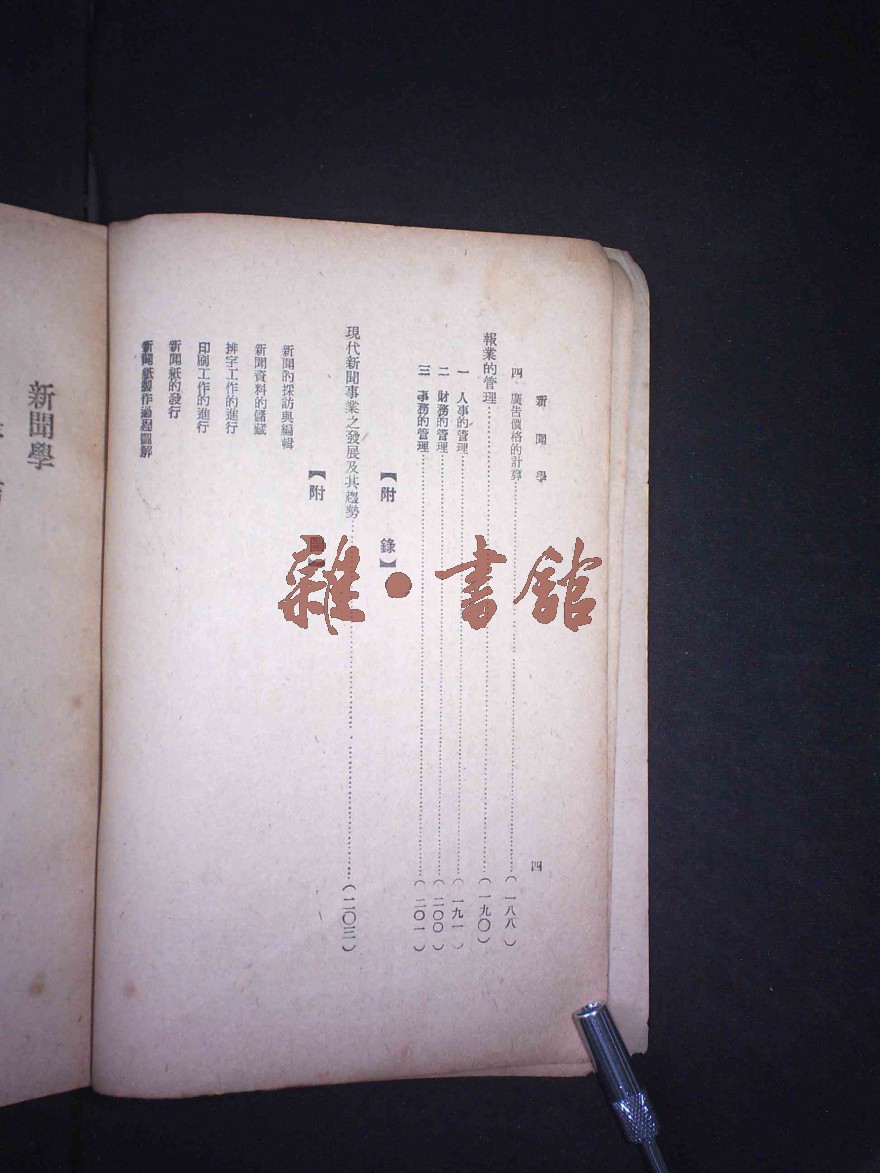 新聞學
四
四 廣告價格的計算……(一八八)
報業的管理……(一九〇)
一 人事的管理……(一九一)
二 財務的管理……(二〇〇)
三 事務的管理……(二〇一)
【附 錄】
現代新聞事業之發展及其趨勢……(二〇三)
【附
新聞的採訪與編輯
新聞資料的儲藏
排字工作的進行
印刷工作的進行
新聞紙的發行
新聞紙製作過程圖解
新聞學
雜·書館